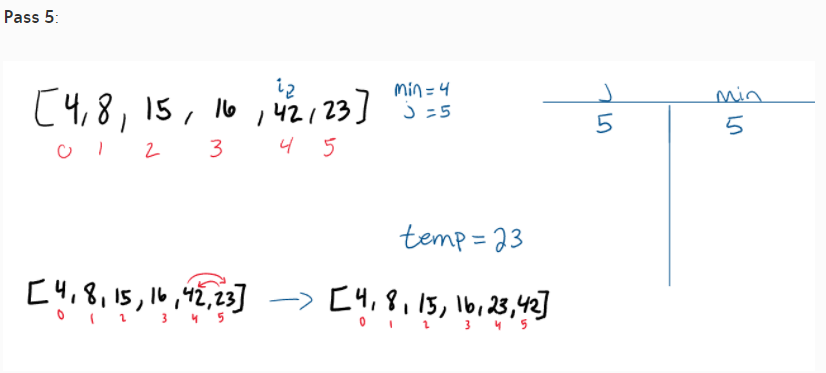 Pass 5:
[4,8, 15, 16, 42, 23]
0 1 2 3 4 5
min=4
j=5
j min
5 5
temp = 23
[4,8,15,16,42,23] → [4,8,15,16,23,42]
0 1 2 3 4 5 0 1 2 3 4 5